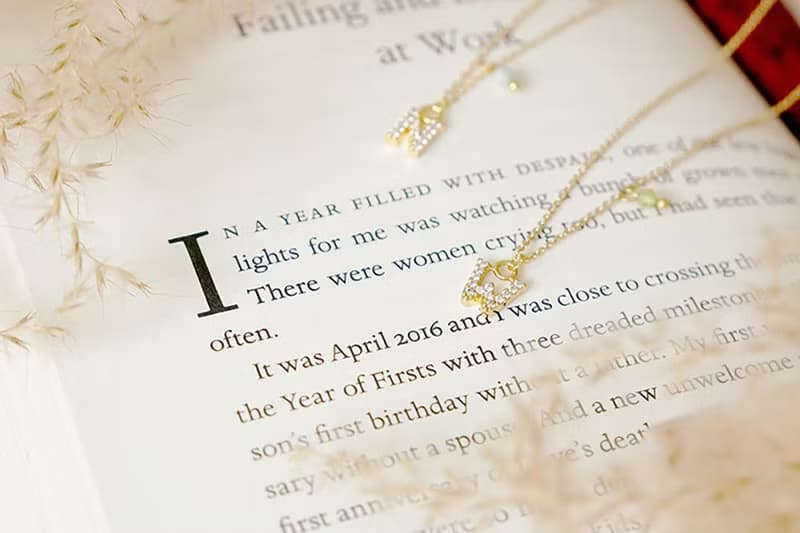 Failing and
at Work
IN A YEAR FILLED WITH DESPAIR, one of
lights for me was watching bunch of grown
There were women crying too, but I had seen that
often.
It was April 2016 and I was close to crossing the
the Year of Firsts with three dreaded milestones
son's first birthday without a father. My first
sary without a spouse. And a new unwelcome
first anniversary of death
were so
kids.